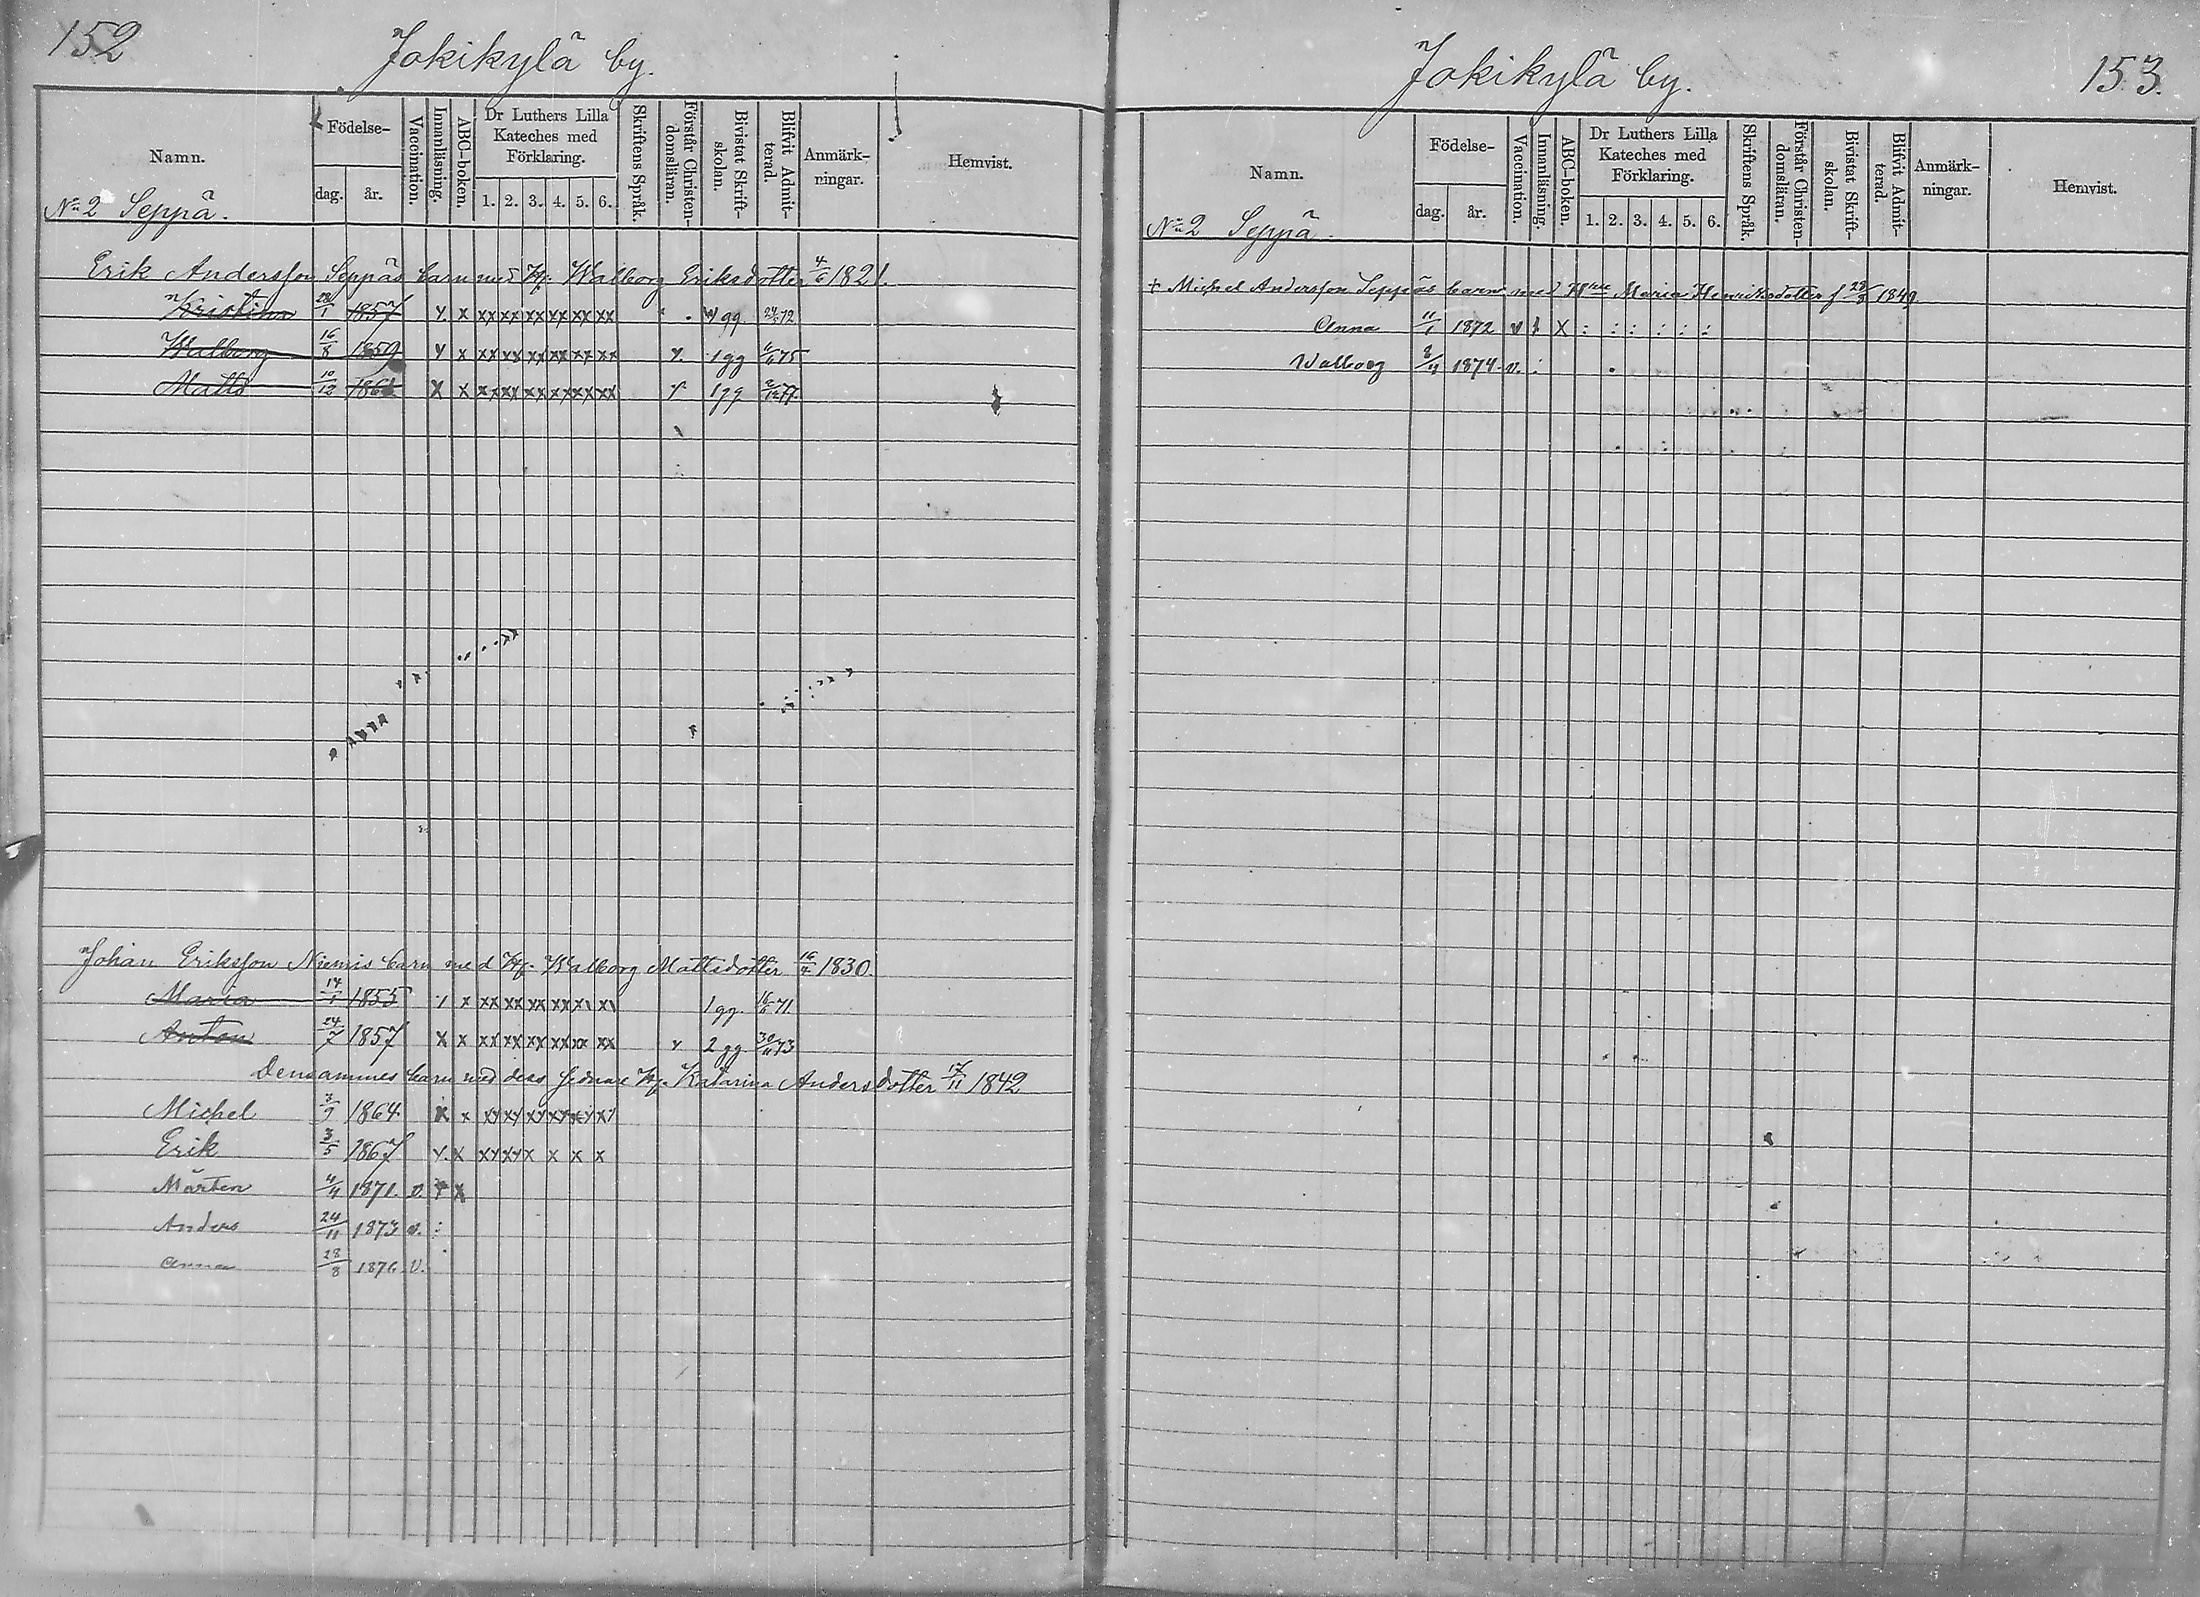 152
Jokikylä by.
Namn.
Födelse-
dag.
år.
Vaccination.
Innanläsning.
ABC-boken.
Dr Luthers Lilla
Kateches med
Förklaring.
1. 2. 3. 4. 5. 6.
Skriftens Språk.
Förstår Christen-
domsläran.
Bivistat Skrift-
skolan.
Blifvit Admit-
terad.
Anmärk-
ningar.
Hemvist.
No 2 Seppä.
Erik Andersson Seppäs barn med H: Walborg Eriksdotter 4/6 1821.
Kristina 28/1 1857 x xx xx xx xx xx xx gg. 72
Walborg 16/8 1859 x xx xx xx xx xx xx 1 gg 75
Matts 10/12 x x xx xx xx xx xx xx 1 gg 77
Johan Eriksson Niemis barn med H: Walborg Mattsdotter 1830.
Maria 14/1 1855 x xx xx xx xx 1 gg. 16/6 71.
Anton 24/7 1857 x x xx xx xx xx xx xx 2 gg. 30/11 73
Densammes barn med dess sednare H: Katarina Andersdotter 17/11 1842
Michel 3/9 1864 x x
Erik 3/5 1867 x x x x
Mårten 4/4 1871. v. x
Anders 24/11 1873 v. :
Anna 28/8 1876. v.
Jokikylä by.
153.
Namn.
Födelse-
dag.
år.
Vaccination.
Innanläsning.
ABC-boken.
Dr Luthers Lilla
Kateches med
Förklaring.
1. 2. 3. 4. 5. 6.
Skriftens Språk.
Förstår Christen-
domsläran.
Bivistat Skrift-
skolan.
Blifvit Admit-
terad.
Anmärk-
ningar.
Hemvist.
No 2 Seppä.
+ Michel Andersson Seppäs barn med Maria Henriksdotter f 1849
Anna 11/1 1872 v x : : : : : :
Walborg 8/4 1874. v. :